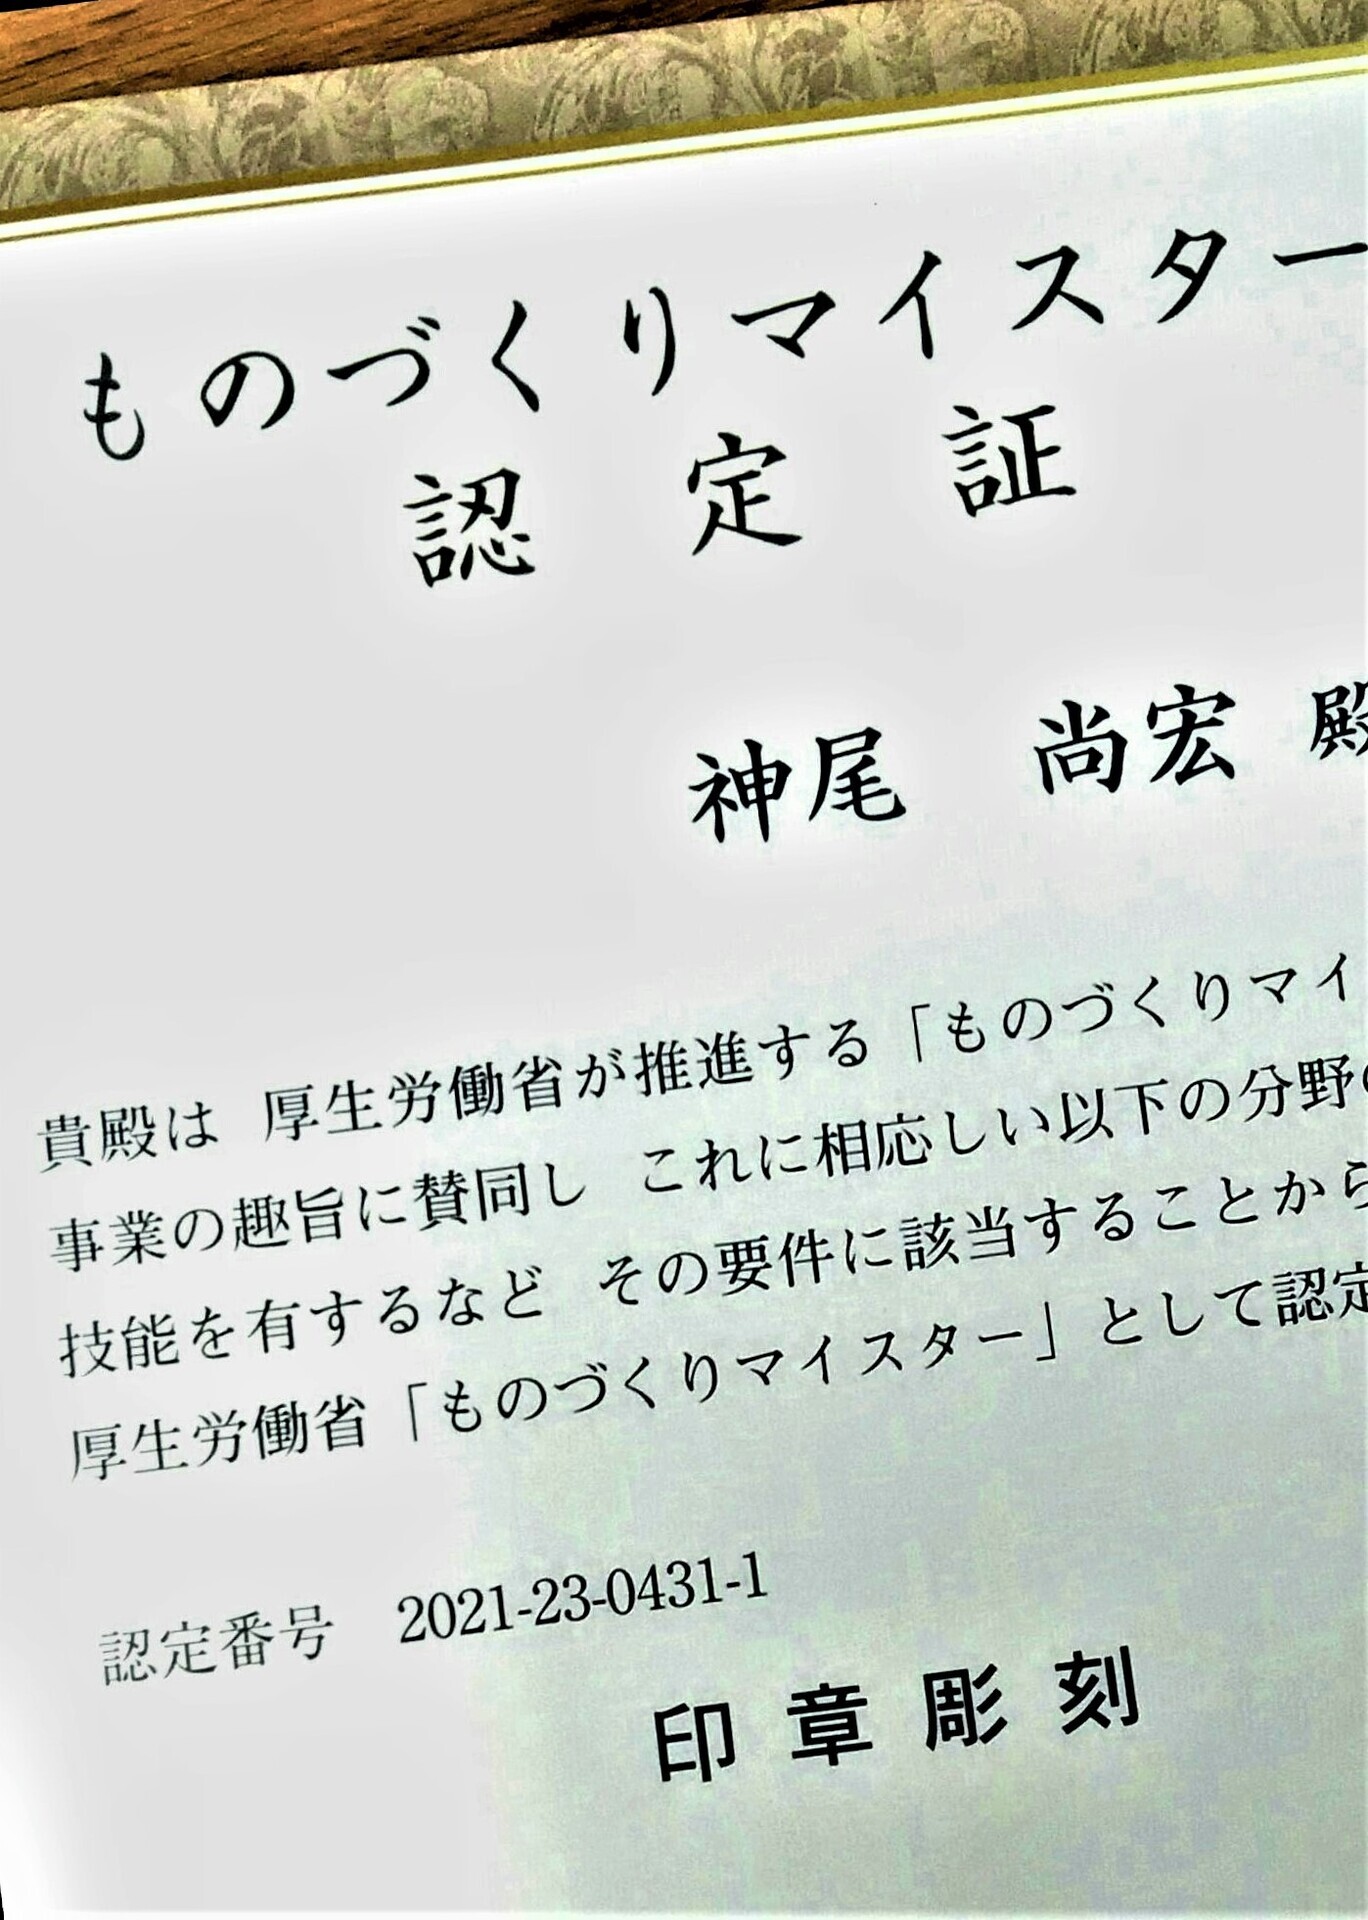 ものづくりマイスター
認定証
神尾 尚宏 殿
貴殿は 厚生労働省が推進する「ものづくりマイ
事業の趣旨に賛同し これに相応しい以下の分野の
技能を有するなど その要件に該当することから
厚生労働省「ものづくりマイスター」として認定
認定番号 2021-23-0431-1
印章彫刻